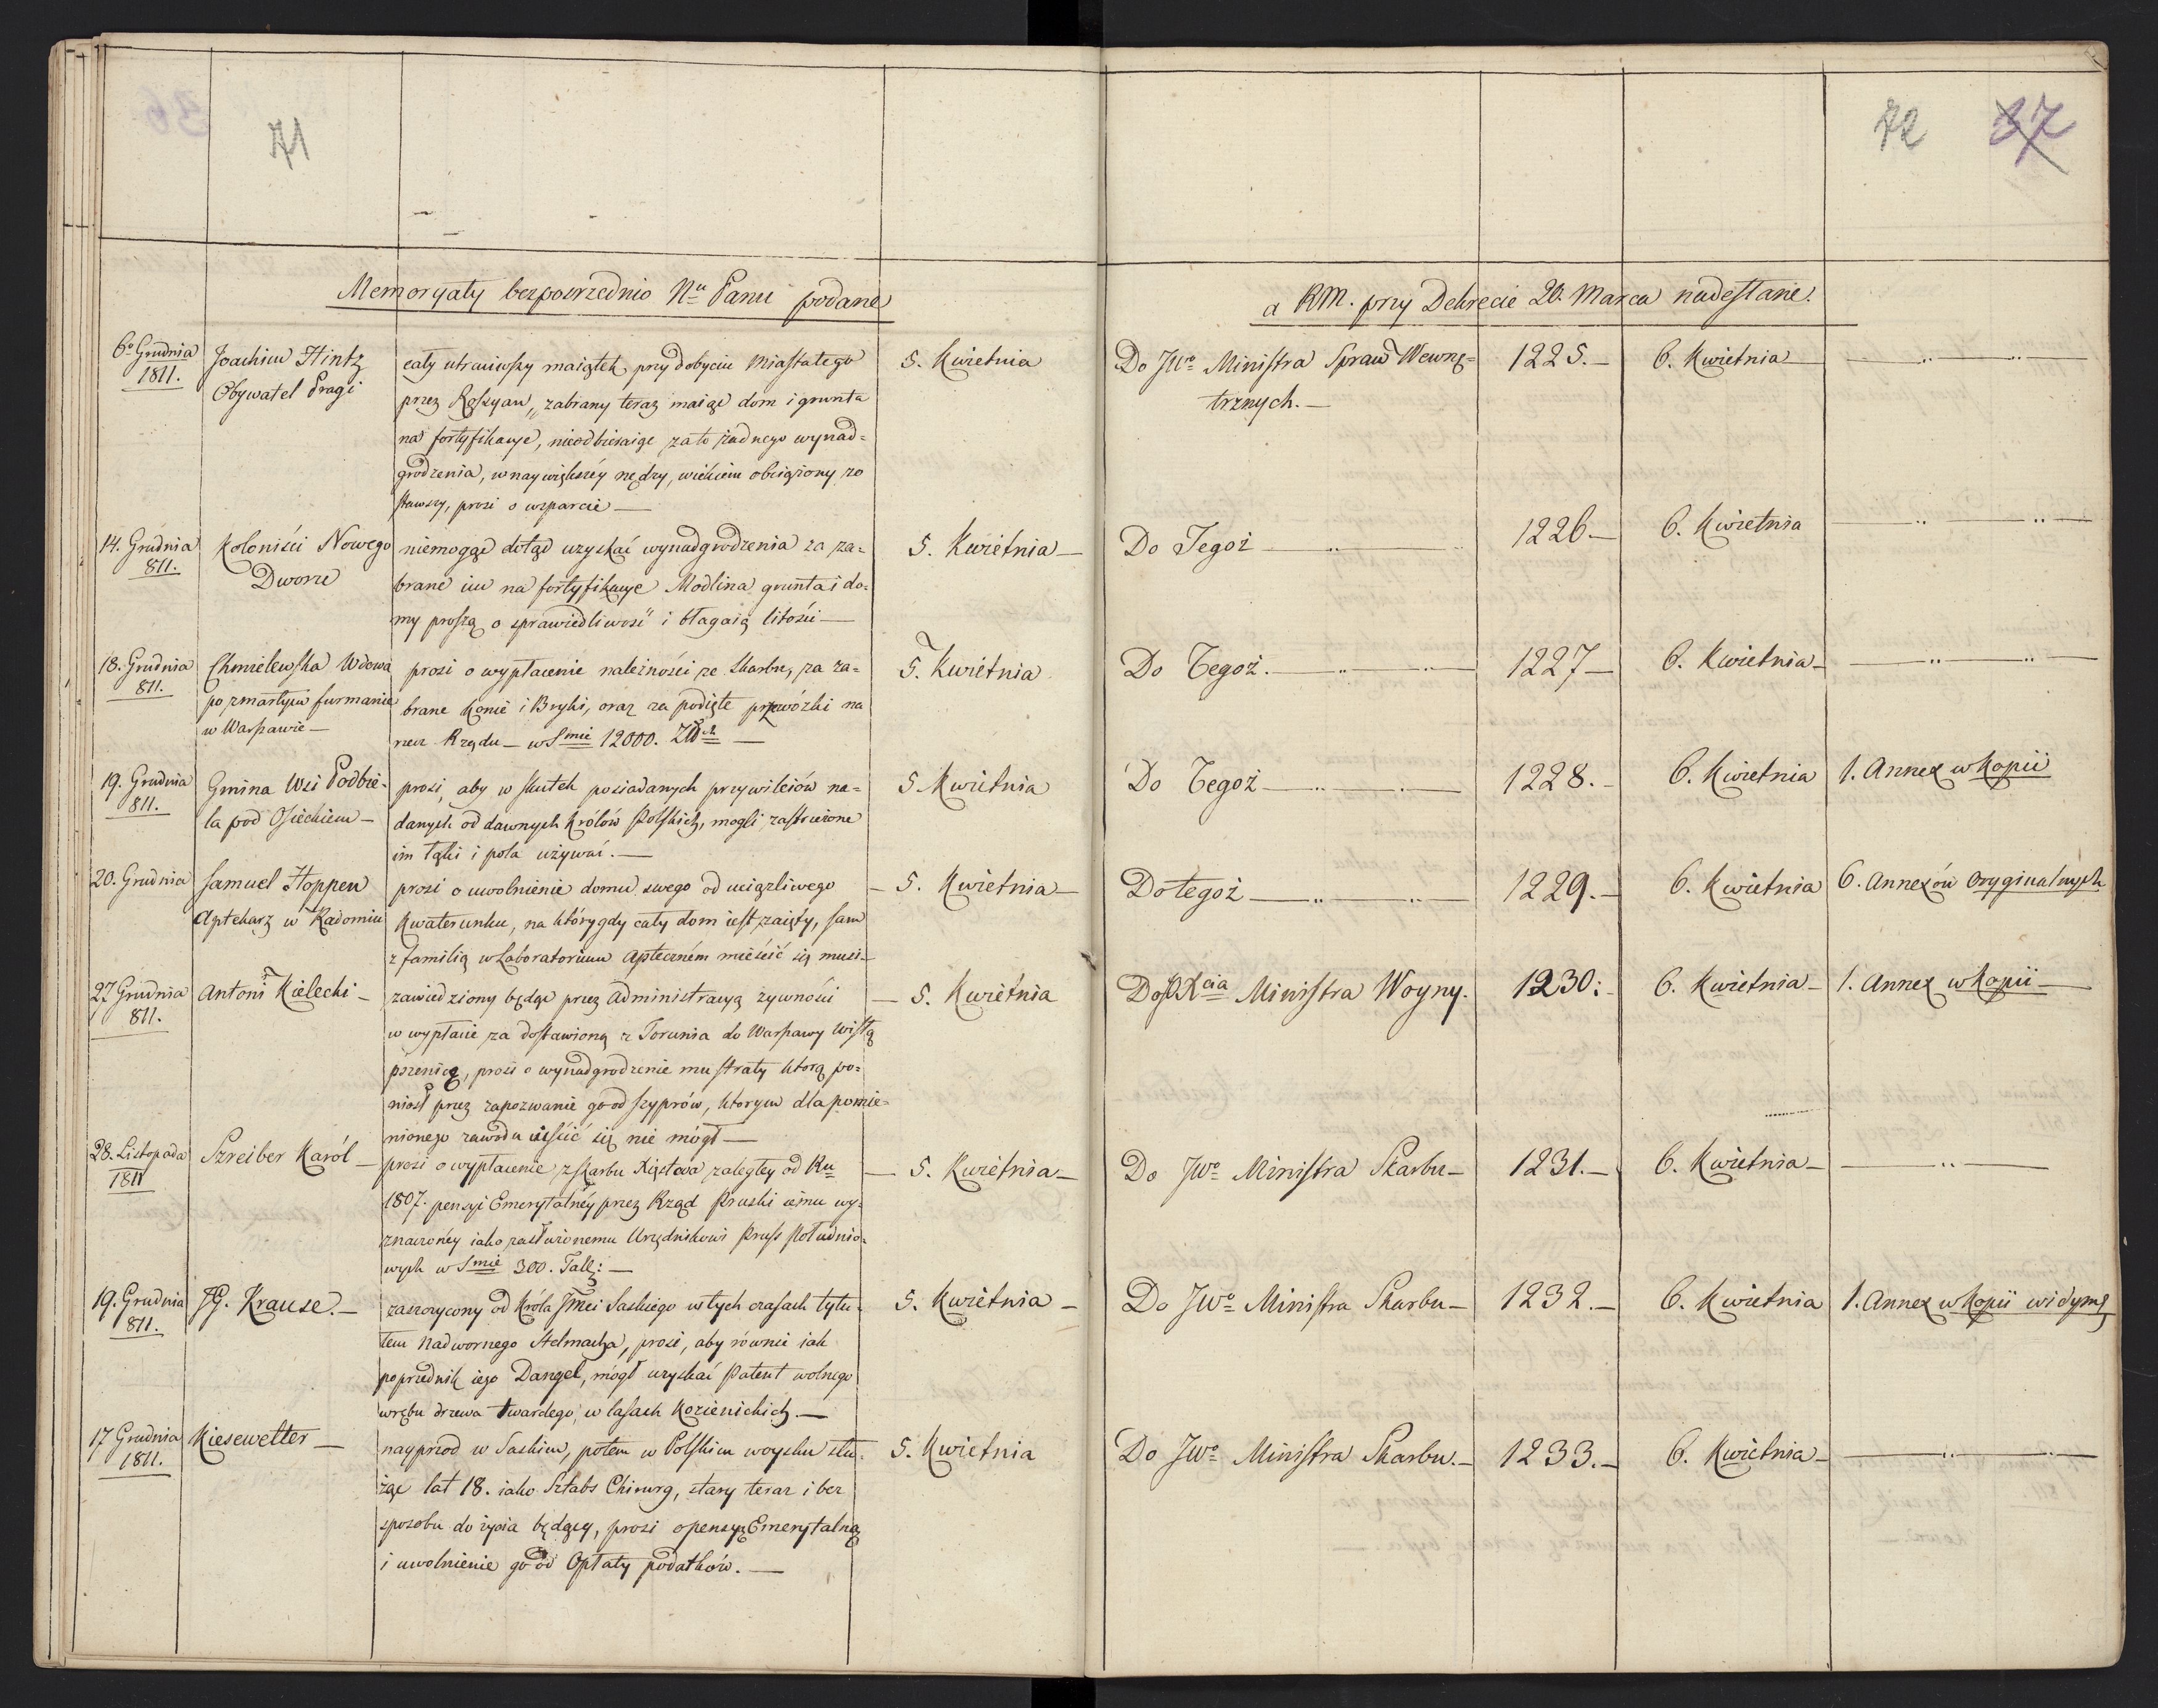 71
72 37
Memoryały bezpośrzednio Nu Panu podane
a RM. przy Dekrecie 20. Marca nadesłane.
6o Grudnia 1811.
Joachim Hintz
Obywatel Pragi
cały utraciwszy maiątek przy dobyciu Miasta tego
przez Rossyan, zabrany teraz maiąc dom i grunta
na fortyfikacye, nieodbieraiąc za to żadnego wynad=
grodzenia, w naywiększéy nędzy, wiekiem obciążony zo
stawszy, prosi o wsparcie —
5. Kwietnia
Do JWo Ministra Spraw Wewnę=
trznych. —
1225. —
6. Kwietnia
14. Grudnia 811.
Koloniści Nowego
Dworu
niemogąc dotąd uzyskać wynadgrodzenia za za=
brane im na fortyfikacye Modlina grunta i do=
my proszą o sprawiedliwość i błagaią litości —
5. Kwietnia —
Do Tegoż
1226 —
6. Kwietnia
18. Grudnia 811.
Chmielewska Wdowa
po zmarłym furmanie
w Warszawie —
prosi o wypłacenie należności ze Skarbu, za za=
brane konie i Bryki, oraz za podięte przewózki na
rzecz Rządu — w Smie 12000. Złł
5. Kwietnia
Do Tegoż.
1227 —
6. Kwietnia —
19. Grudnia 811.
Gmina Wsi Podbie=
la pod Osieckiem —
prosi, aby w skutek posiadanych przywileiów na=
danych od dawnych Królów Polskich, mogli zastrzeżone
im łąki i pola używać. —
5. Kwietnia
Do Tegoż
1228. —
6. Kwietnia
1. Annex w Kopii
20. Grudnia
Samuel Hoppen
Aptekarz w Radomiu
prosi o uwolnienie domu swego od uciążliwego
Kwaterunku, na który gdy cały dom iest zaięty, sam
z familią w Laboratorium Apteczném mieścić się musi —
5. Kwietnia —
Do tegoż
1229. —
6. Kwietnia
6. Annexów Oryginalnych
27 Grudnia 811.
Antoni Kielecki —
zawiedziony będąc przez Administracyą żywności
w wypłacie za dostawioną z Torunia do Warszawy Wisłą
pszenicę, prosi o wynadgrodzenie mu straty którą po=
niósł przez zapozwanie go od szyprów, którym dla pomie=
nionego zawodu uiścić się nie mógł —
5. Kwietnia
Ministra Woyny.
1230:
6. Kwietnia —
1. Annex w Kopii —
28. Listopada 1811
Szreiber Karól —
prosi o wypłacenie z Skarbu Xięstwa zaległey od Ru
1807. pensyi Emerytalnéy przez Rząd Pruski iemu wy=
znaczonéy iako zasłużonemu Urzędnikowi Pruss Południo=
wych w Smie 300. Tall: —
5. Kwietnia —
Do JWo Ministra Skarbu —
1231. —
6. Kwietnia —
19. Grudnia 811.
JG. Krause. —
zaszczycony od Króla Jmci Saskiego w tych czasach tytu=
łem Nadwornego Stelmacha, prosi, aby równie iak
poprzednik iego Dangel, mógł uzyskać Patent wolnego
wrębu drzewa twardego, w lasach Kozienickich. —
5. Kwietnia —
Do JWo Ministra Skarbu —
1232. —
6. Kwietnia
1. Annex w Kopii widyme
17 Grudnia 1811.
Kiesewetter —
nayprzod w Saskim, potem w Polskim woysku słu=
żąc lat 18. iako Sztabs Chirurg, stary teraz i bez
sposobu do życia będący, prosi o pensyą Emerytalną
i uwolnienie go od Opłaty podatków. —
5. Kwietnia
Do JWo Ministra Skarbu. —
1233. —
6. Kwietnia —